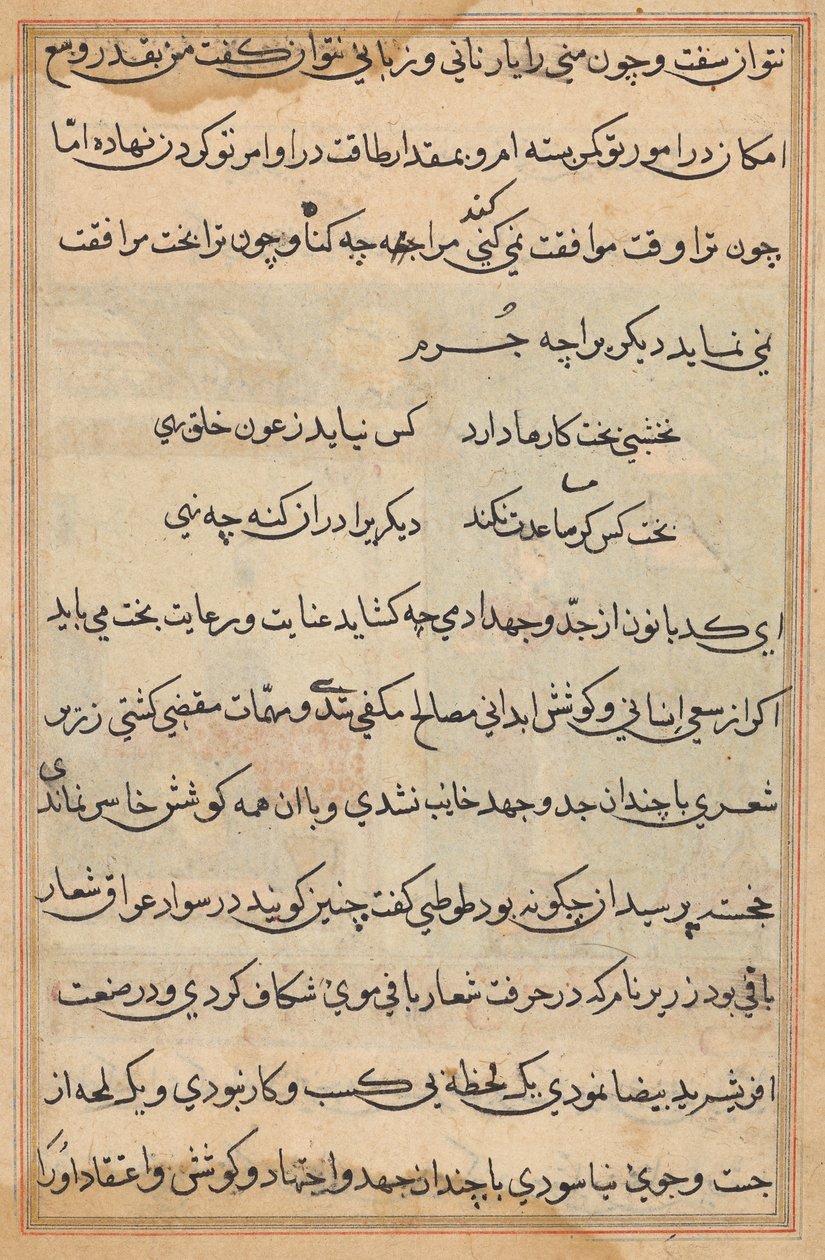 نتوان سفت و چون مني را يار ناني و زباني نتوان كفت من بقدر وسع
امكان در امور تو كمر بسته ام و بمقدار طاقت در اوامر تو كردن نهاده امّا
چون ترا وقت موافقت نمي كني كند مرا چه كناه و چون ترا بخت مرافقت
نمي نمايد ديكريرا چه جُرم
نخشبي بخت كارها دارد كس نيايد ز عون خلق بهي
بخت كس كر مساعدت نكند ديكريرا دران كنه چه نهي
اي كدبانو ن از جدّ و جهد ادمي چه كشايد عنايت و رعايت بخت مي بايد
اكر از سعي انساني و كوشش ابداني مصالح مكفي شدي و مهمّات مقضي كشتي زرير
شعري با چندان جد و جهد خايب نشدي و با ان همه كوشش خاسر نماندي
خجسته پرسيد ان چكونه بود طوطي كفت چنين كويند در سواد عراق شعار
بافي بود زرير نام كه در حرفت شعار بافي موي شكاف كردي و در صنعت
يد بيضا نمودي يك لحظه بي كسب و كار نبودي و يك لمحه از
جست و جوي نياسودي با چندان جهد و اجتهاد و كوشش و اعتقاد اورا